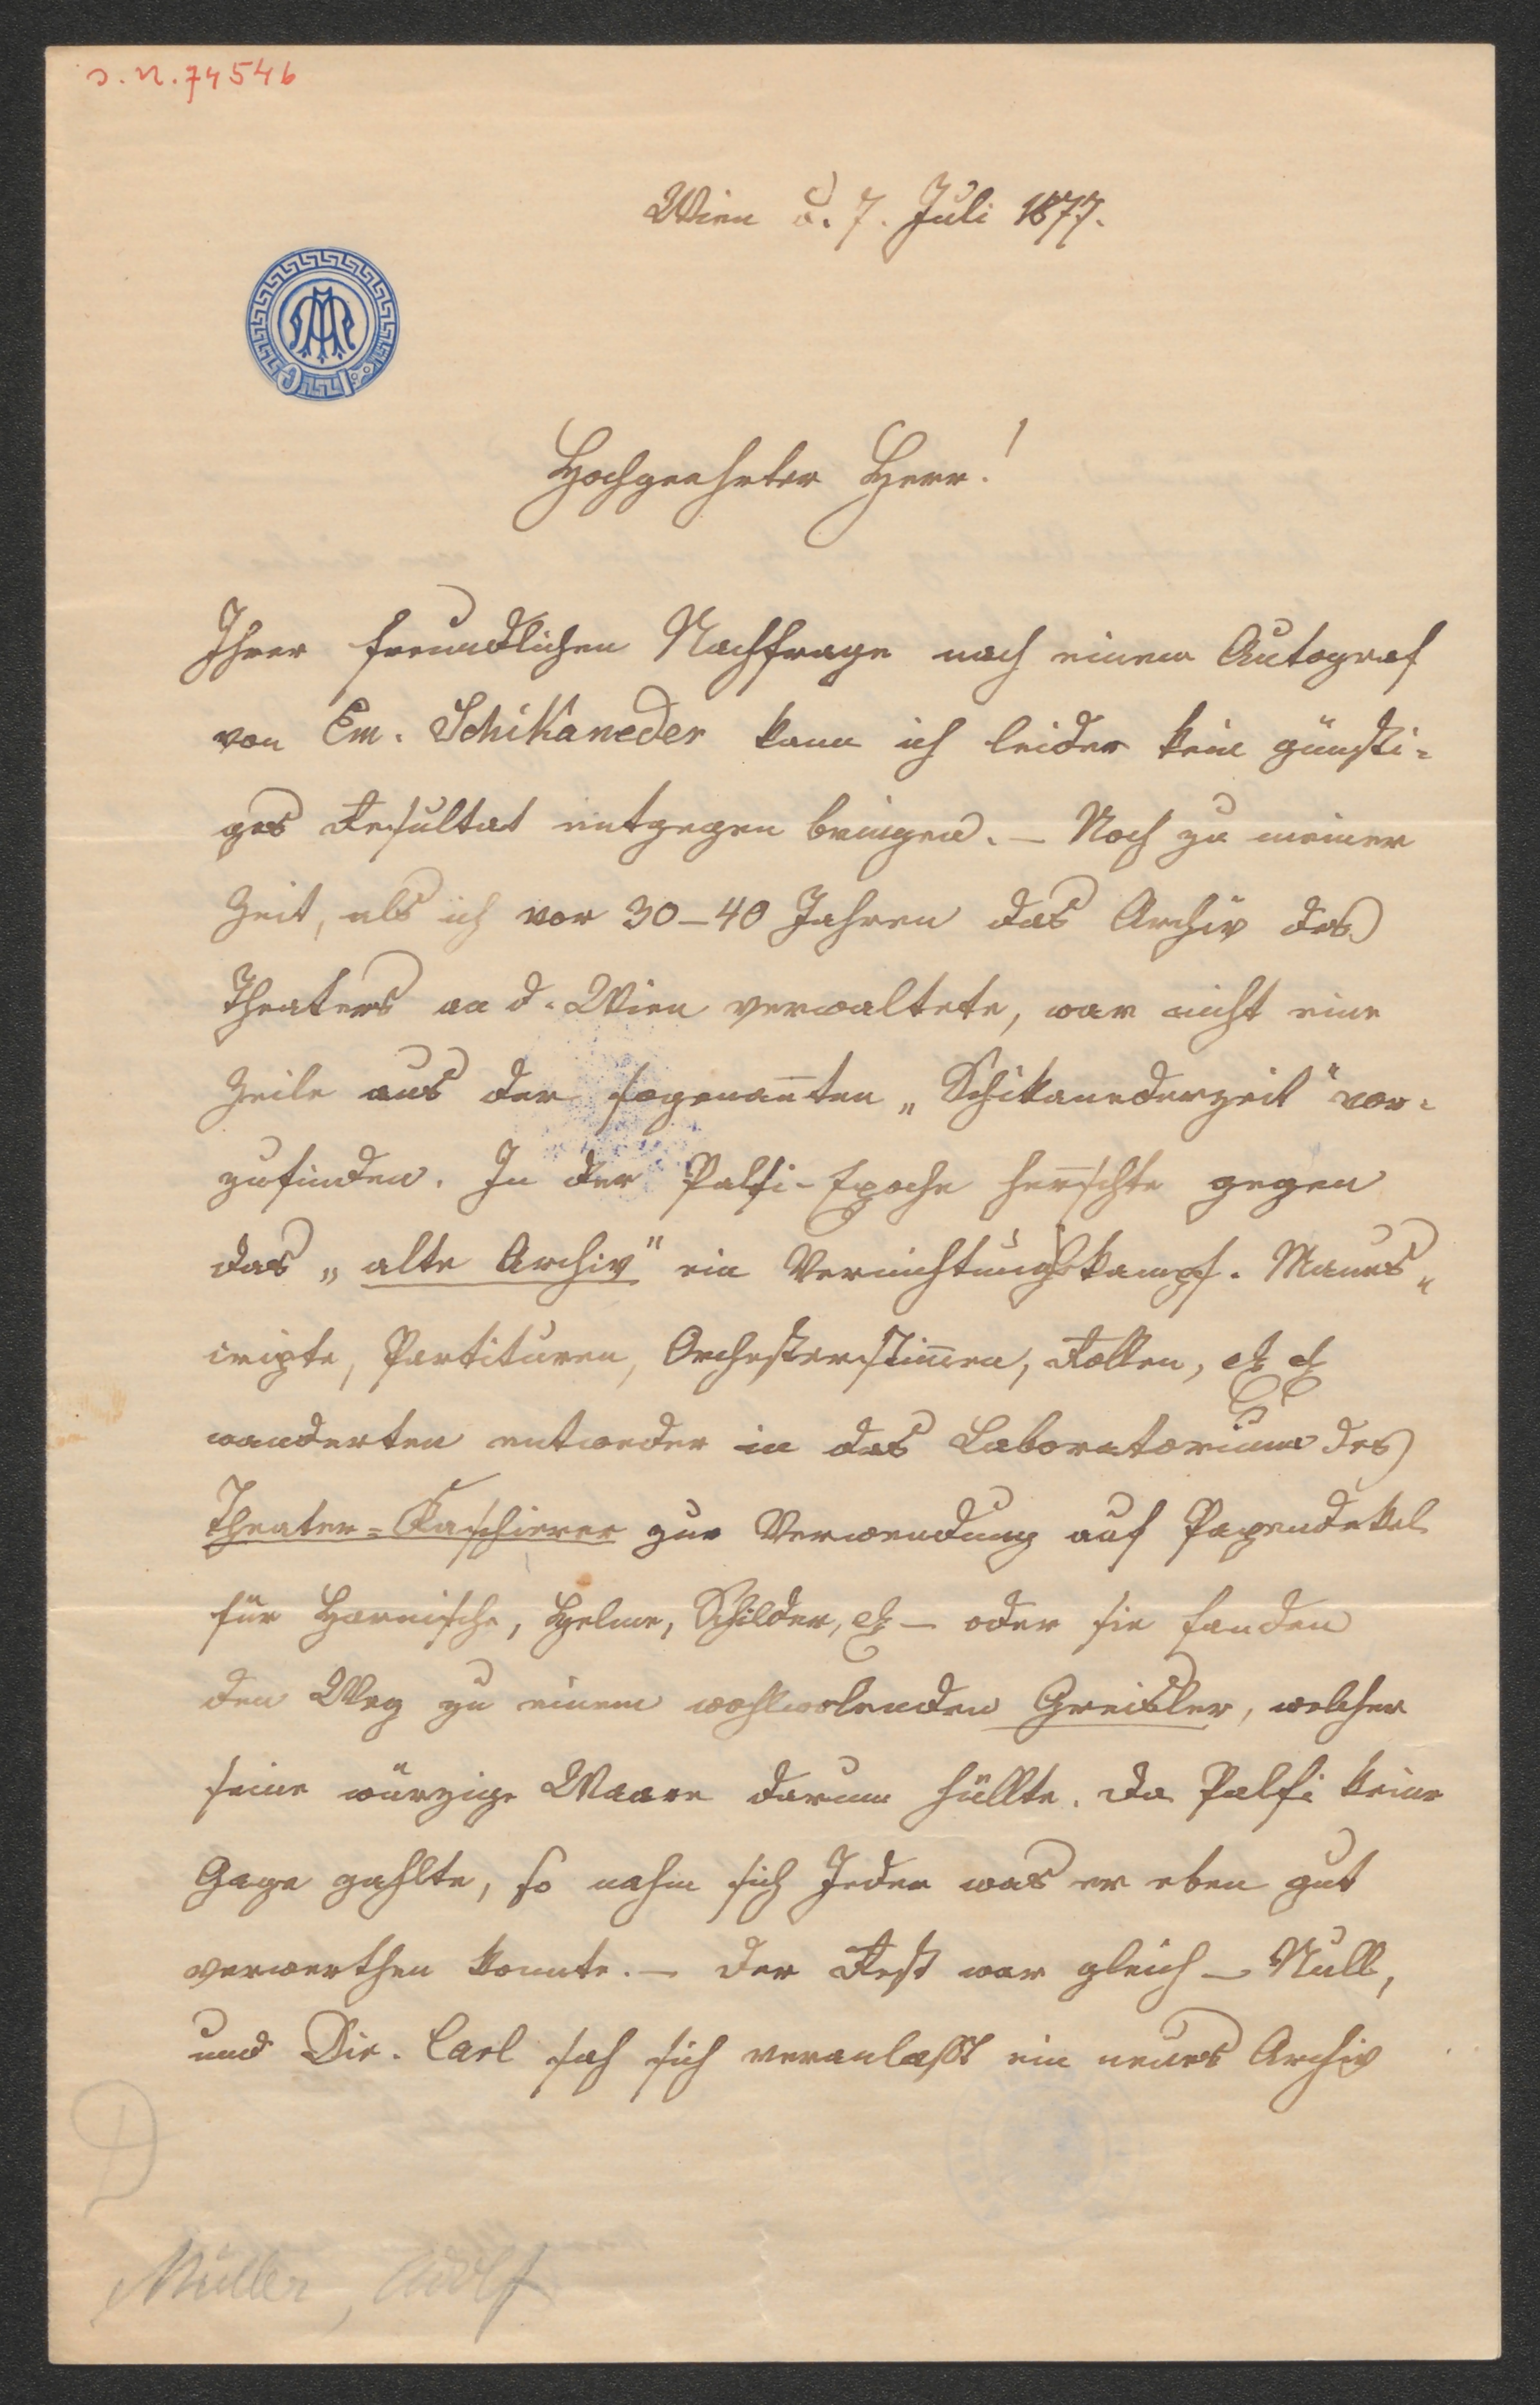 I. N. 74546
Wien d. 7. Juli 1877.
AM
Hochgeehrter Herr!
Ihrer freundlichen Nachfrage nach einem Autograf
von Em. Schikaneder kann ich leider kein günsti-
ges Resultat entgegen bringen. – Noch zu meiner
Zeit, als ich vor 30–40 Jahren das Archiv des
Theaters an d. Wien verwaltete, war nicht eine
Zeile aus der sogenan̄ten „Schikanederzeit" vor-
zufinden. In der Palfi-Epoche her̄schte gegen
das „alte Archiv" ein Vernichtungskampf. Manus„
cripte, Partituren, Orchesterstim̄en, Rollen, etc etc
wanderten entweder in das Laboratorium des
Theater=Kaschierer zur Verwendung auf Papendekel
für Harnische, Helme, Schilder, etc – oder sie fanden
den Weg zu einem wohlwolenden Greisler, welcher
seine würzige Waare darum hüllte. Da Palfi keine
Gage zahlte, so nahm sich Jeder was er eben gut
verwerthen konnte. – Der Rest war gleich – Null,
und Dir. Carl sah sich veranlasst ein neues Archiv
D
Müller, Adolf